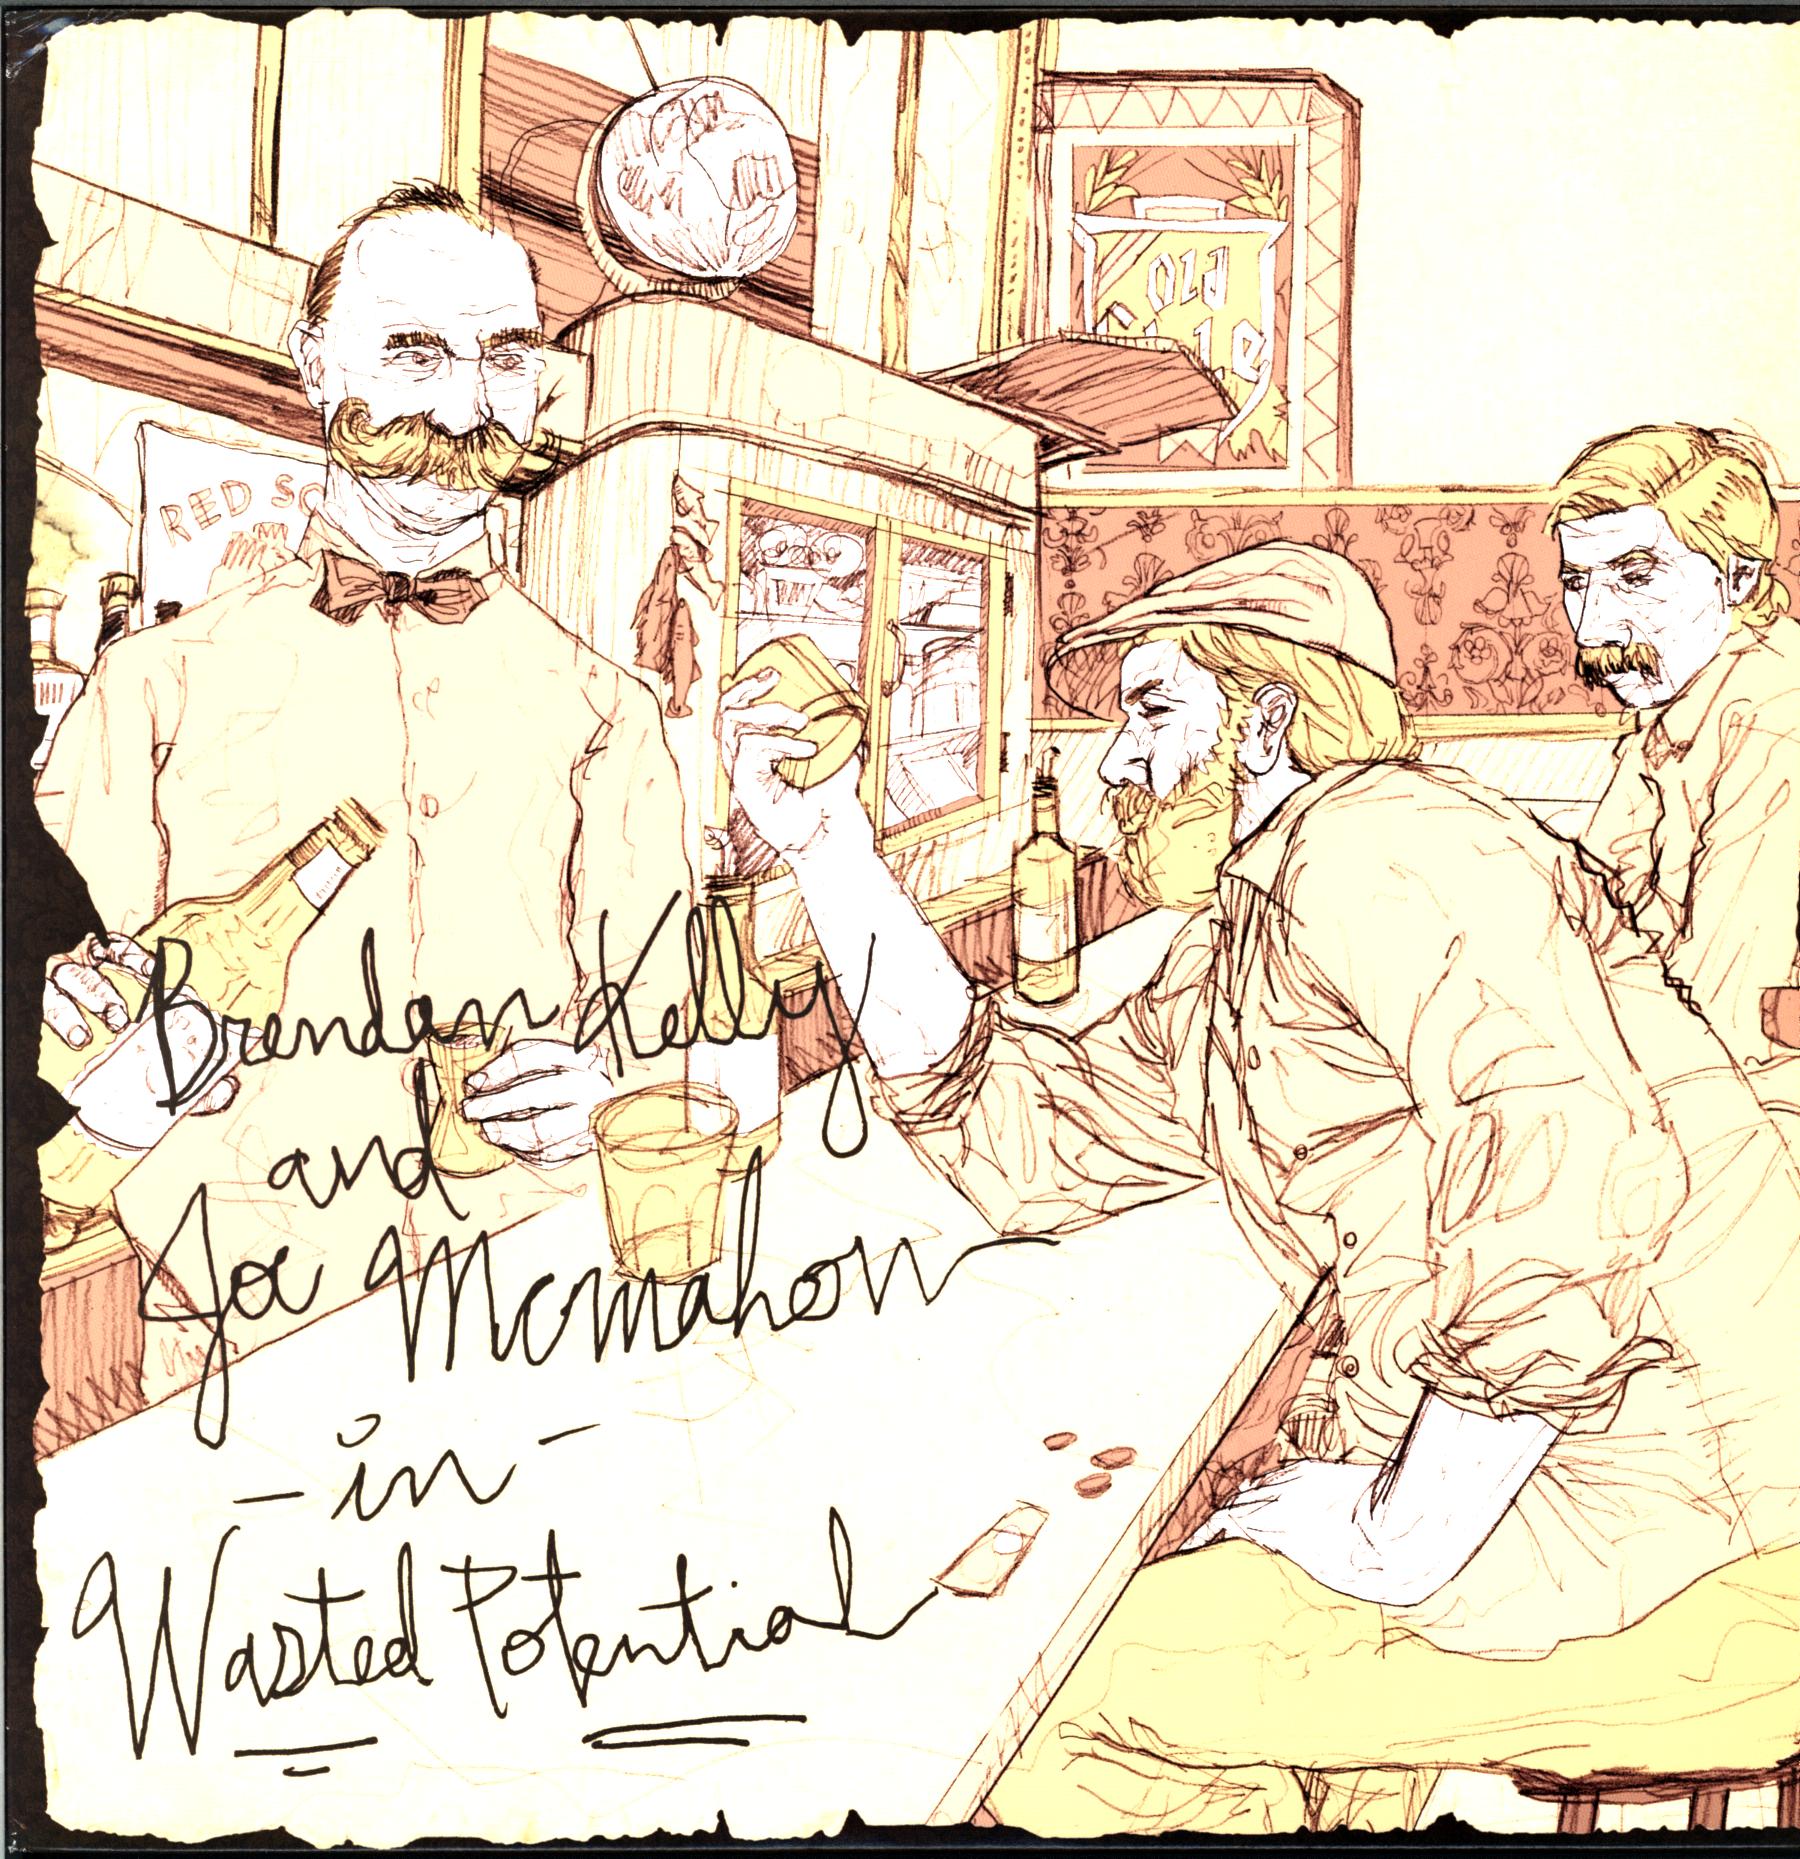 OLD
RED
Brendan Kelly
and
Joe Mcmahon
- in -
Wasted Potential